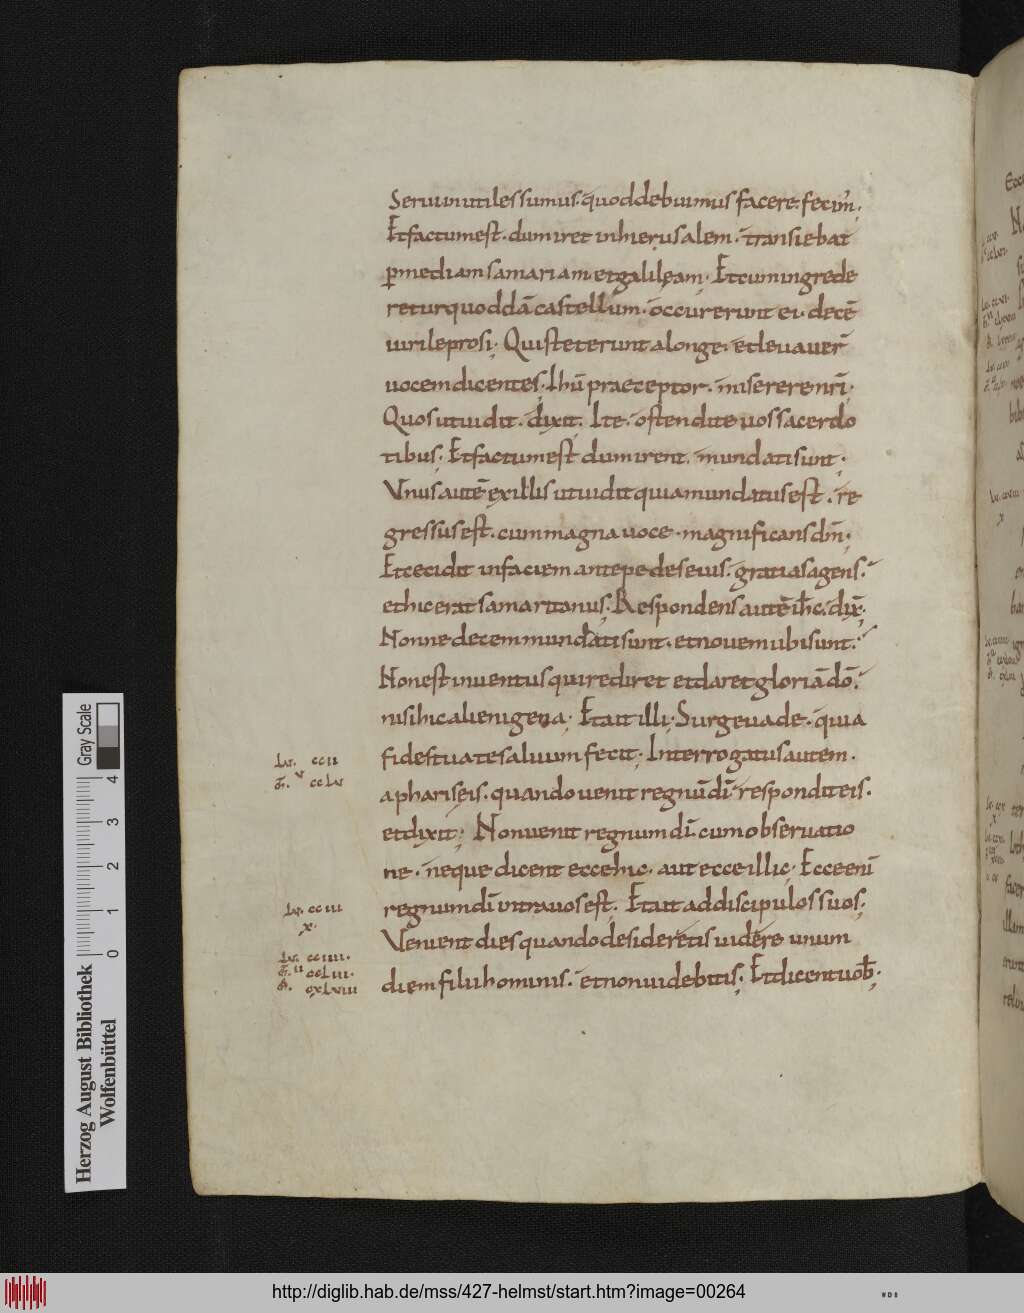 Serui inutiles sumus. quod debuimus facere. fecim̾.
Et factum est. dum iret in hierusalem. transiebat
p̱ mediam samariam. et galileam. Et cum ingrede
retur quoddā castellum. occurerunt ei. decē
uiri leprosi. Qui steterunt a longe. et leuauer̄
uocem dicentes. Ihū praeceptor. miserere nr̄i.
Quos ut uidit. dixit. Ite. ostendite uos sacerdo
tibus. Et factum est dum irent. mundati sunt.
Vnus autē ex illis ut uidit quia mundatus est. re
gressus est. cum magna uoce. magnificans dm̄.
Et cecidit in faciem ante pedes eius. gratias agens.
et hic erat samaritanus. Respondens autē ih̄c. dix̄.
Nonne decem mundati sunt. et nouem ubi sunt.
Non est inuentus qui rediret et daret gloriā dō.
nisi hic alienigena. Et ait illi. Surge uade. quia
fides tua te saluum fecit. Interrogatus autem.
a phariseis. quando uenit regnū dī. respondit eis.
et dixit. Non uenit regnum dī. cum obseruatio
ne. neque dicent ecce hic. aut ecce illic. Ecce enī
regnum dī intra uos est. Et ait ad discipulos suos.
Venient dies quando desideretis uidere unum
diem filii hominis. et non uidebitis. Et dicent uob̄.
Lv. ccii
v
m̄. cclv
Lv. cciii
x.
Lv. cciiii.
m̄. ii ccliii.
cxlviii
Gray Scale
4 3 2 1 0
Herzog August Bibliothek
Wolfenbüttel
http://diglib.hab.de/mss/427-helmst/start.htm?image=00264